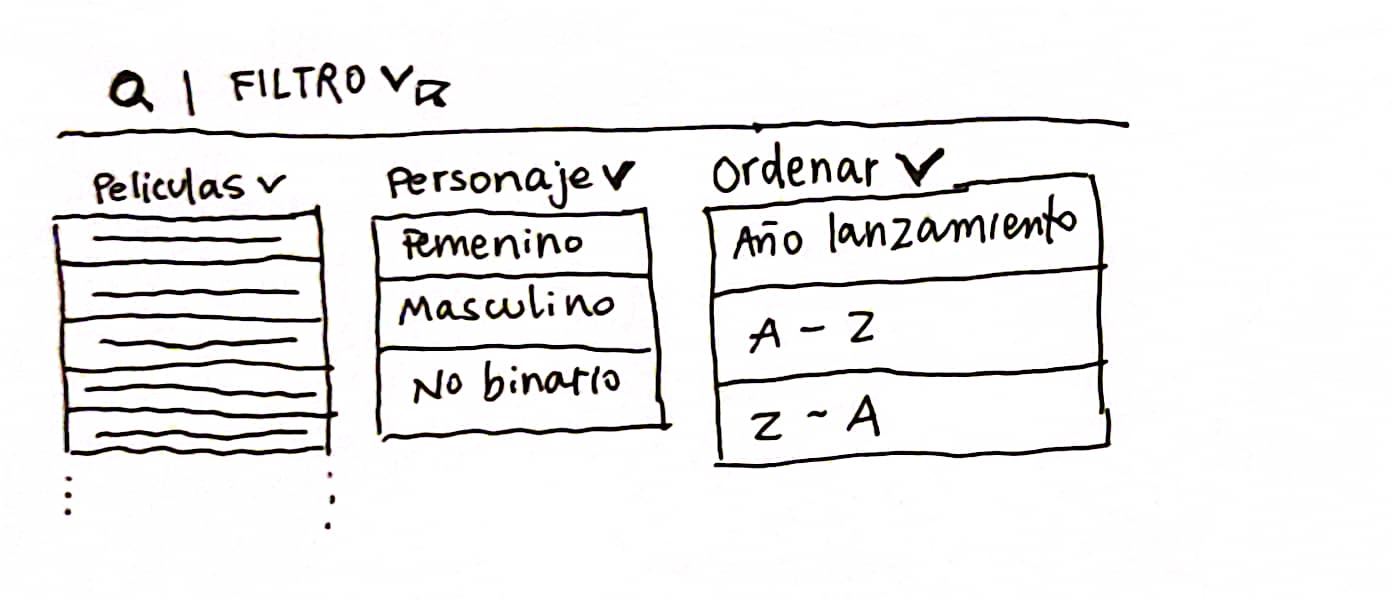 FILTRO
Peliculas
Personaje
Femenino
Masculino
No binario
Ordenar
Año lanzamiento
A - Z
Z - A